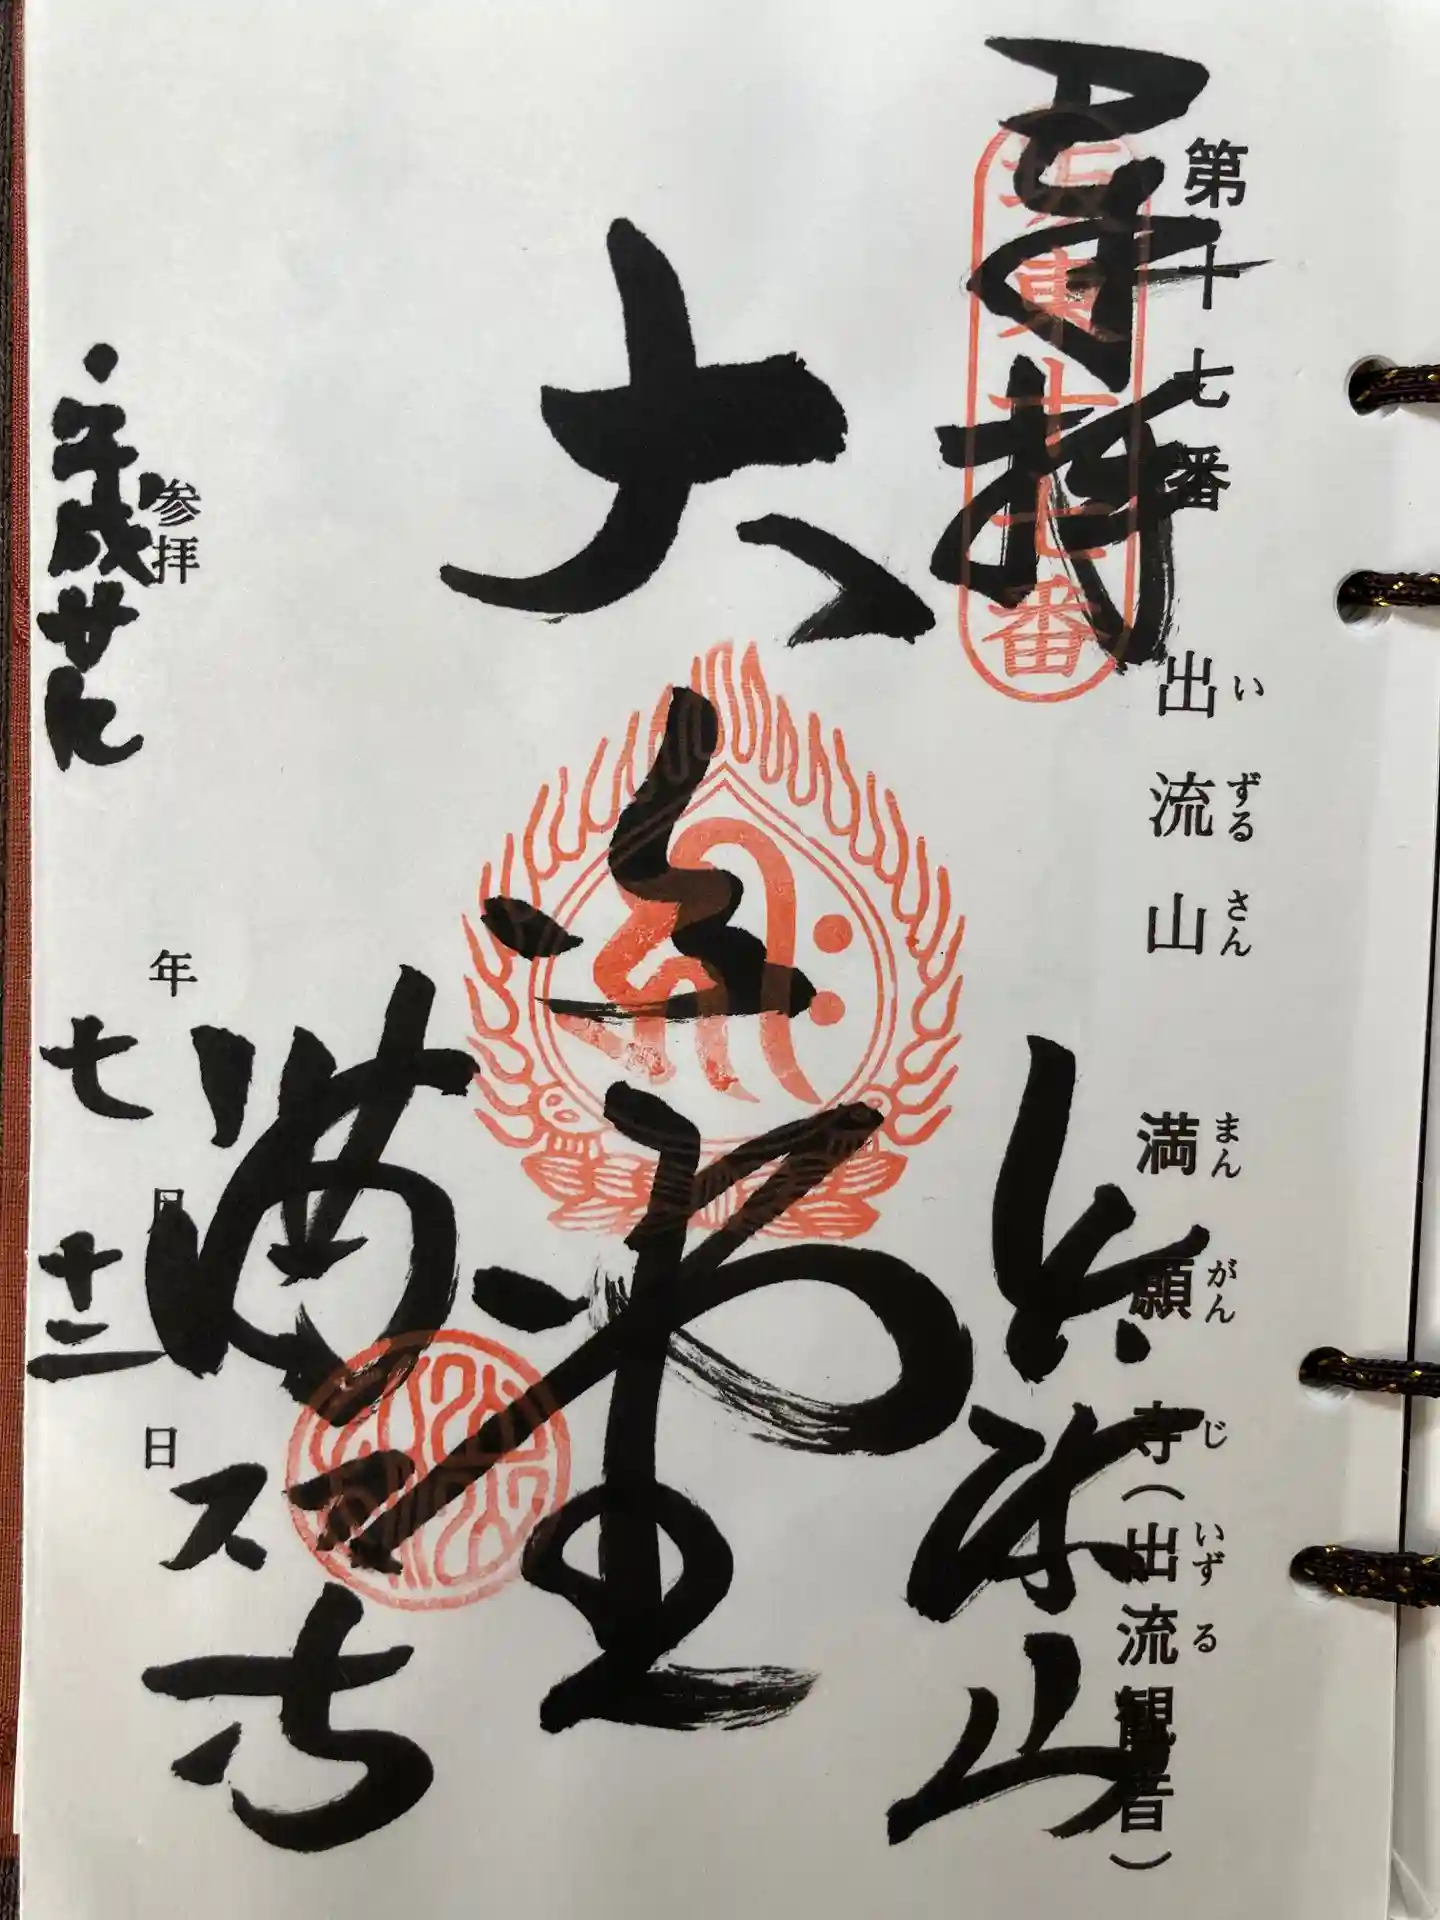 第十七番 出流山 満願寺(出流観音)
いずるさん まんがんじ いずる
奉拝
坂東十七番
出流山
大
満願寺
参拝
平成廿
年七月十二日